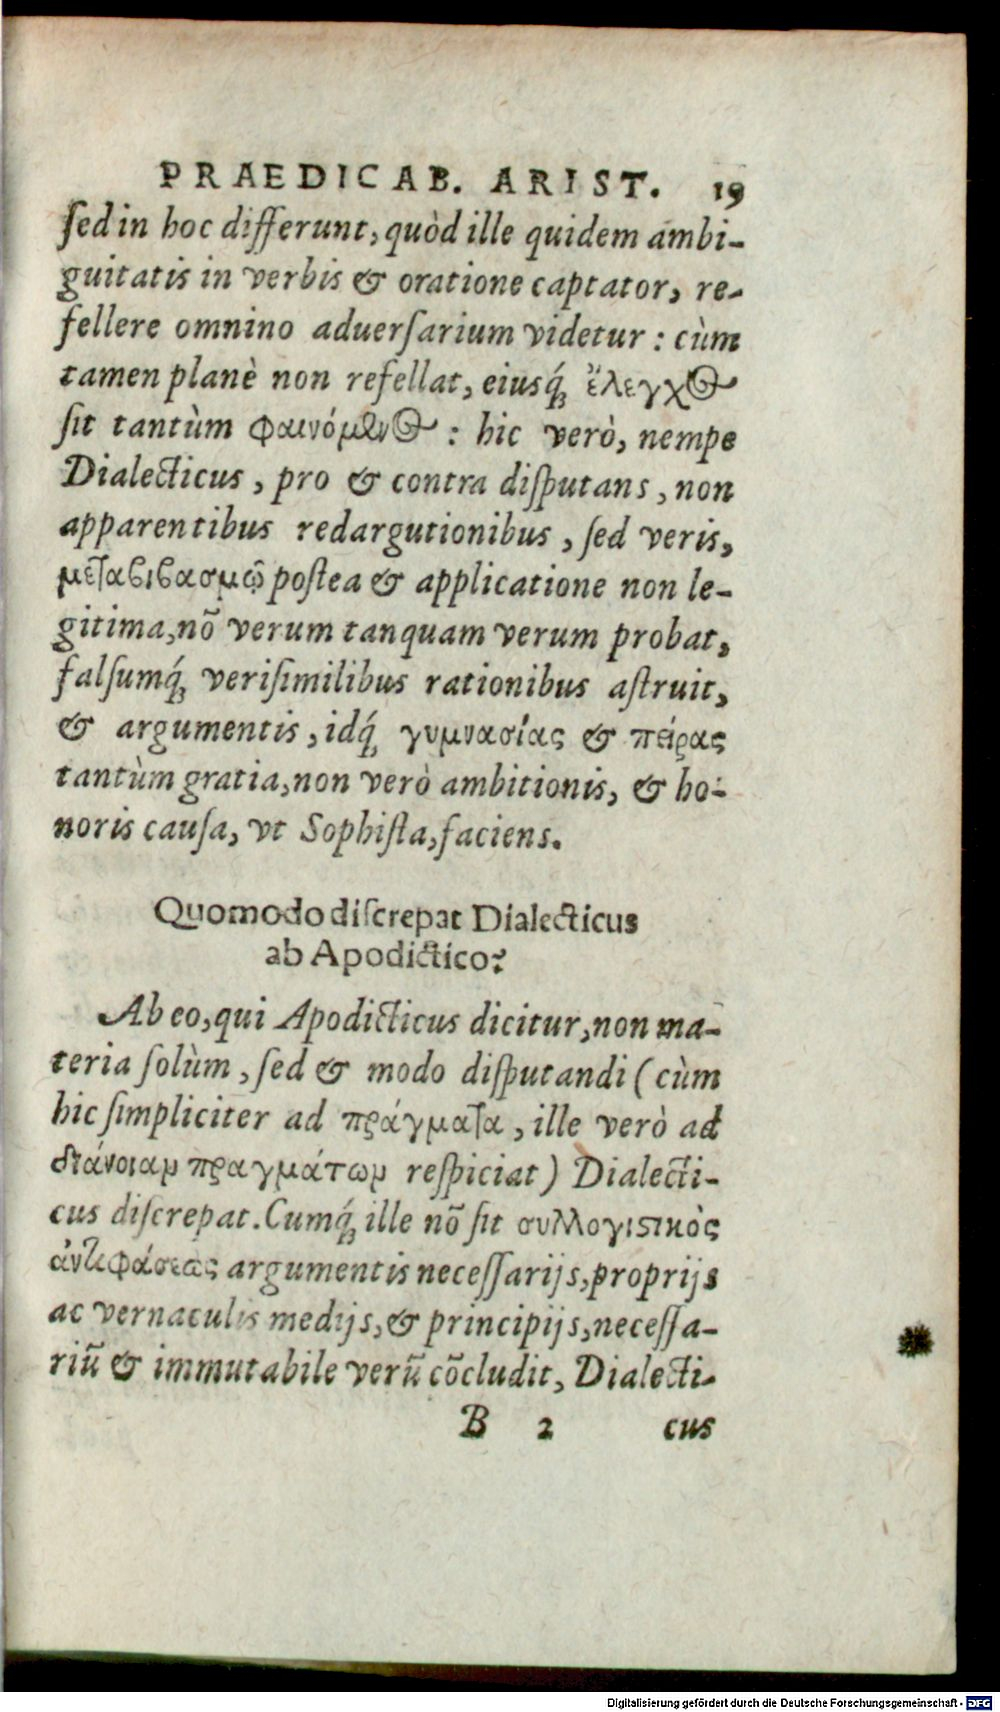 PRAEDICAB. ARIST. 19
ſed in hoc differunt, quòd ille quidem ambi-
guitatis in verbis & oratione captator, re-
fellere omnino aduerſarium videtur: cùm
tamen planè non refellat, eiusq́; ἔλεγχος
ſit tantùm φαινόμενος: hic verò, nempe
Dialecticus, pro & contra diſputans, non
apparentibus redargutionibus, ſed veris,
μεταβιβασμῷ poſtea & applicatione non le-
gitima, nõ verum tanquam verum probat,
falſumq́; veriſimilibus rationibus aſtruit,
& argumentis, idq́; γυμνασίας & πείρας
tantùm gratia, non verò ambitionis, & ho-
noris cauſa, vt Sophiſta, faciens.
Quomodo diſcrepat Dialecticus
ab Apodictico?
Ab eo, qui Apodicticus dicitur, non ma-
teria ſolùm, ſed & modo diſputandi (cùm
hic ſimpliciter ad πράγματα, ille verò ad
διάνοιαν πραγμάτων reſpiciat) Dialecti-
cus diſcrepat. Cumq́; ille nõ ſit συλλογιστικὸς
ἀντιφάσεως argumentis neceſſarijs, proprijs
ac vernaculis medijs, & principijs, neceſſa-
riũ & immutabile verũ cõcludit, Dialecti-
B 2 cus
Digitalisierung gefördert durch die Deutsche Forschungsgemeinschaft - DFG